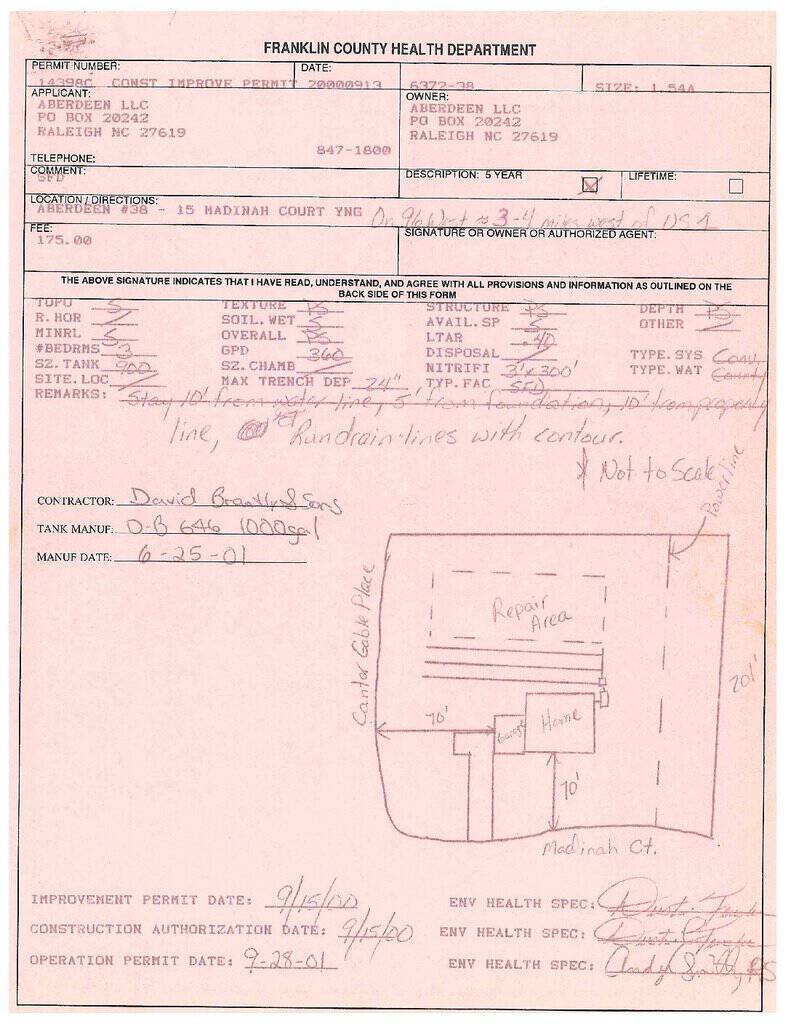 FRANKLIN COUNTY HEALTH DEPARTMENT
PERMIT NUMBER: DATE:
14398C CONST IMPROVE PERMIT 20000913 6372-38 SIZE: 1.54A
APPLICANT: OWNER:
ABERDEEN LLC ABERDEEN LLC
PO BOX 20242 PO BOX 20242
RALEIGH NC 27619 RALEIGH NC 27619
TELEPHONE: 847-1800
COMMENT: DESCRIPTION: 5 YEAR LIFETIME:
SFD
LOCATION / DIRECTIONS:
ABERDEEN #38 - 15 MADINAH COURT YNG On 96 West ≈ 3-4 miles west of US 1
FEE: SIGNATURE OR OWNER OR AUTHORIZED AGENT:
175.00
THE ABOVE SIGNATURE INDICATES THAT I HAVE READ, UNDERSTAND, AND AGREE WITH ALL PROVISIONS AND INFORMATION AS OUTLINED ON THE
BACK SIDE OF THIS FORM
TOPO S TEXTURE PS STRUCTURE PS DEPTH PS
R.HOR / SOIL.WET S AVAIL.SP S OTHER /
MINRL S OVERALL PS LTAR .40
#BEDRMS 3 GPD 360 DISPOSAL / TYPE.SYS Conv.
SZ.TANK 900 SZ.CHAMB / NITRIFI 3'x300' TYPE.WAT County
SITE.LOC / MAX TRENCH DEP 24" TYP.FAC SFD
REMARKS: Stay 10' from water line, 5' from foundation, 10' from property
line, Run drain-lines with contour.
* Not to Scale
Powerline
CONTRACTOR: David Brantly & Sons
TANK MANUF: D-B 646 1000gal
MANUF DATE: 6-25-01
Cantor Gable Place
Repair
Area
201'
70' Garage Home
70'
Madinah Ct.
IMPROVEMENT PERMIT DATE: 9/15/00 ENV HEALTH SPEC:
CONSTRUCTION AUTHORIZATION DATE: 9/15/00 ENV HEALTH SPEC:
OPERATION PERMIT DATE: 9-28-01 ENV HEALTH SPEC: